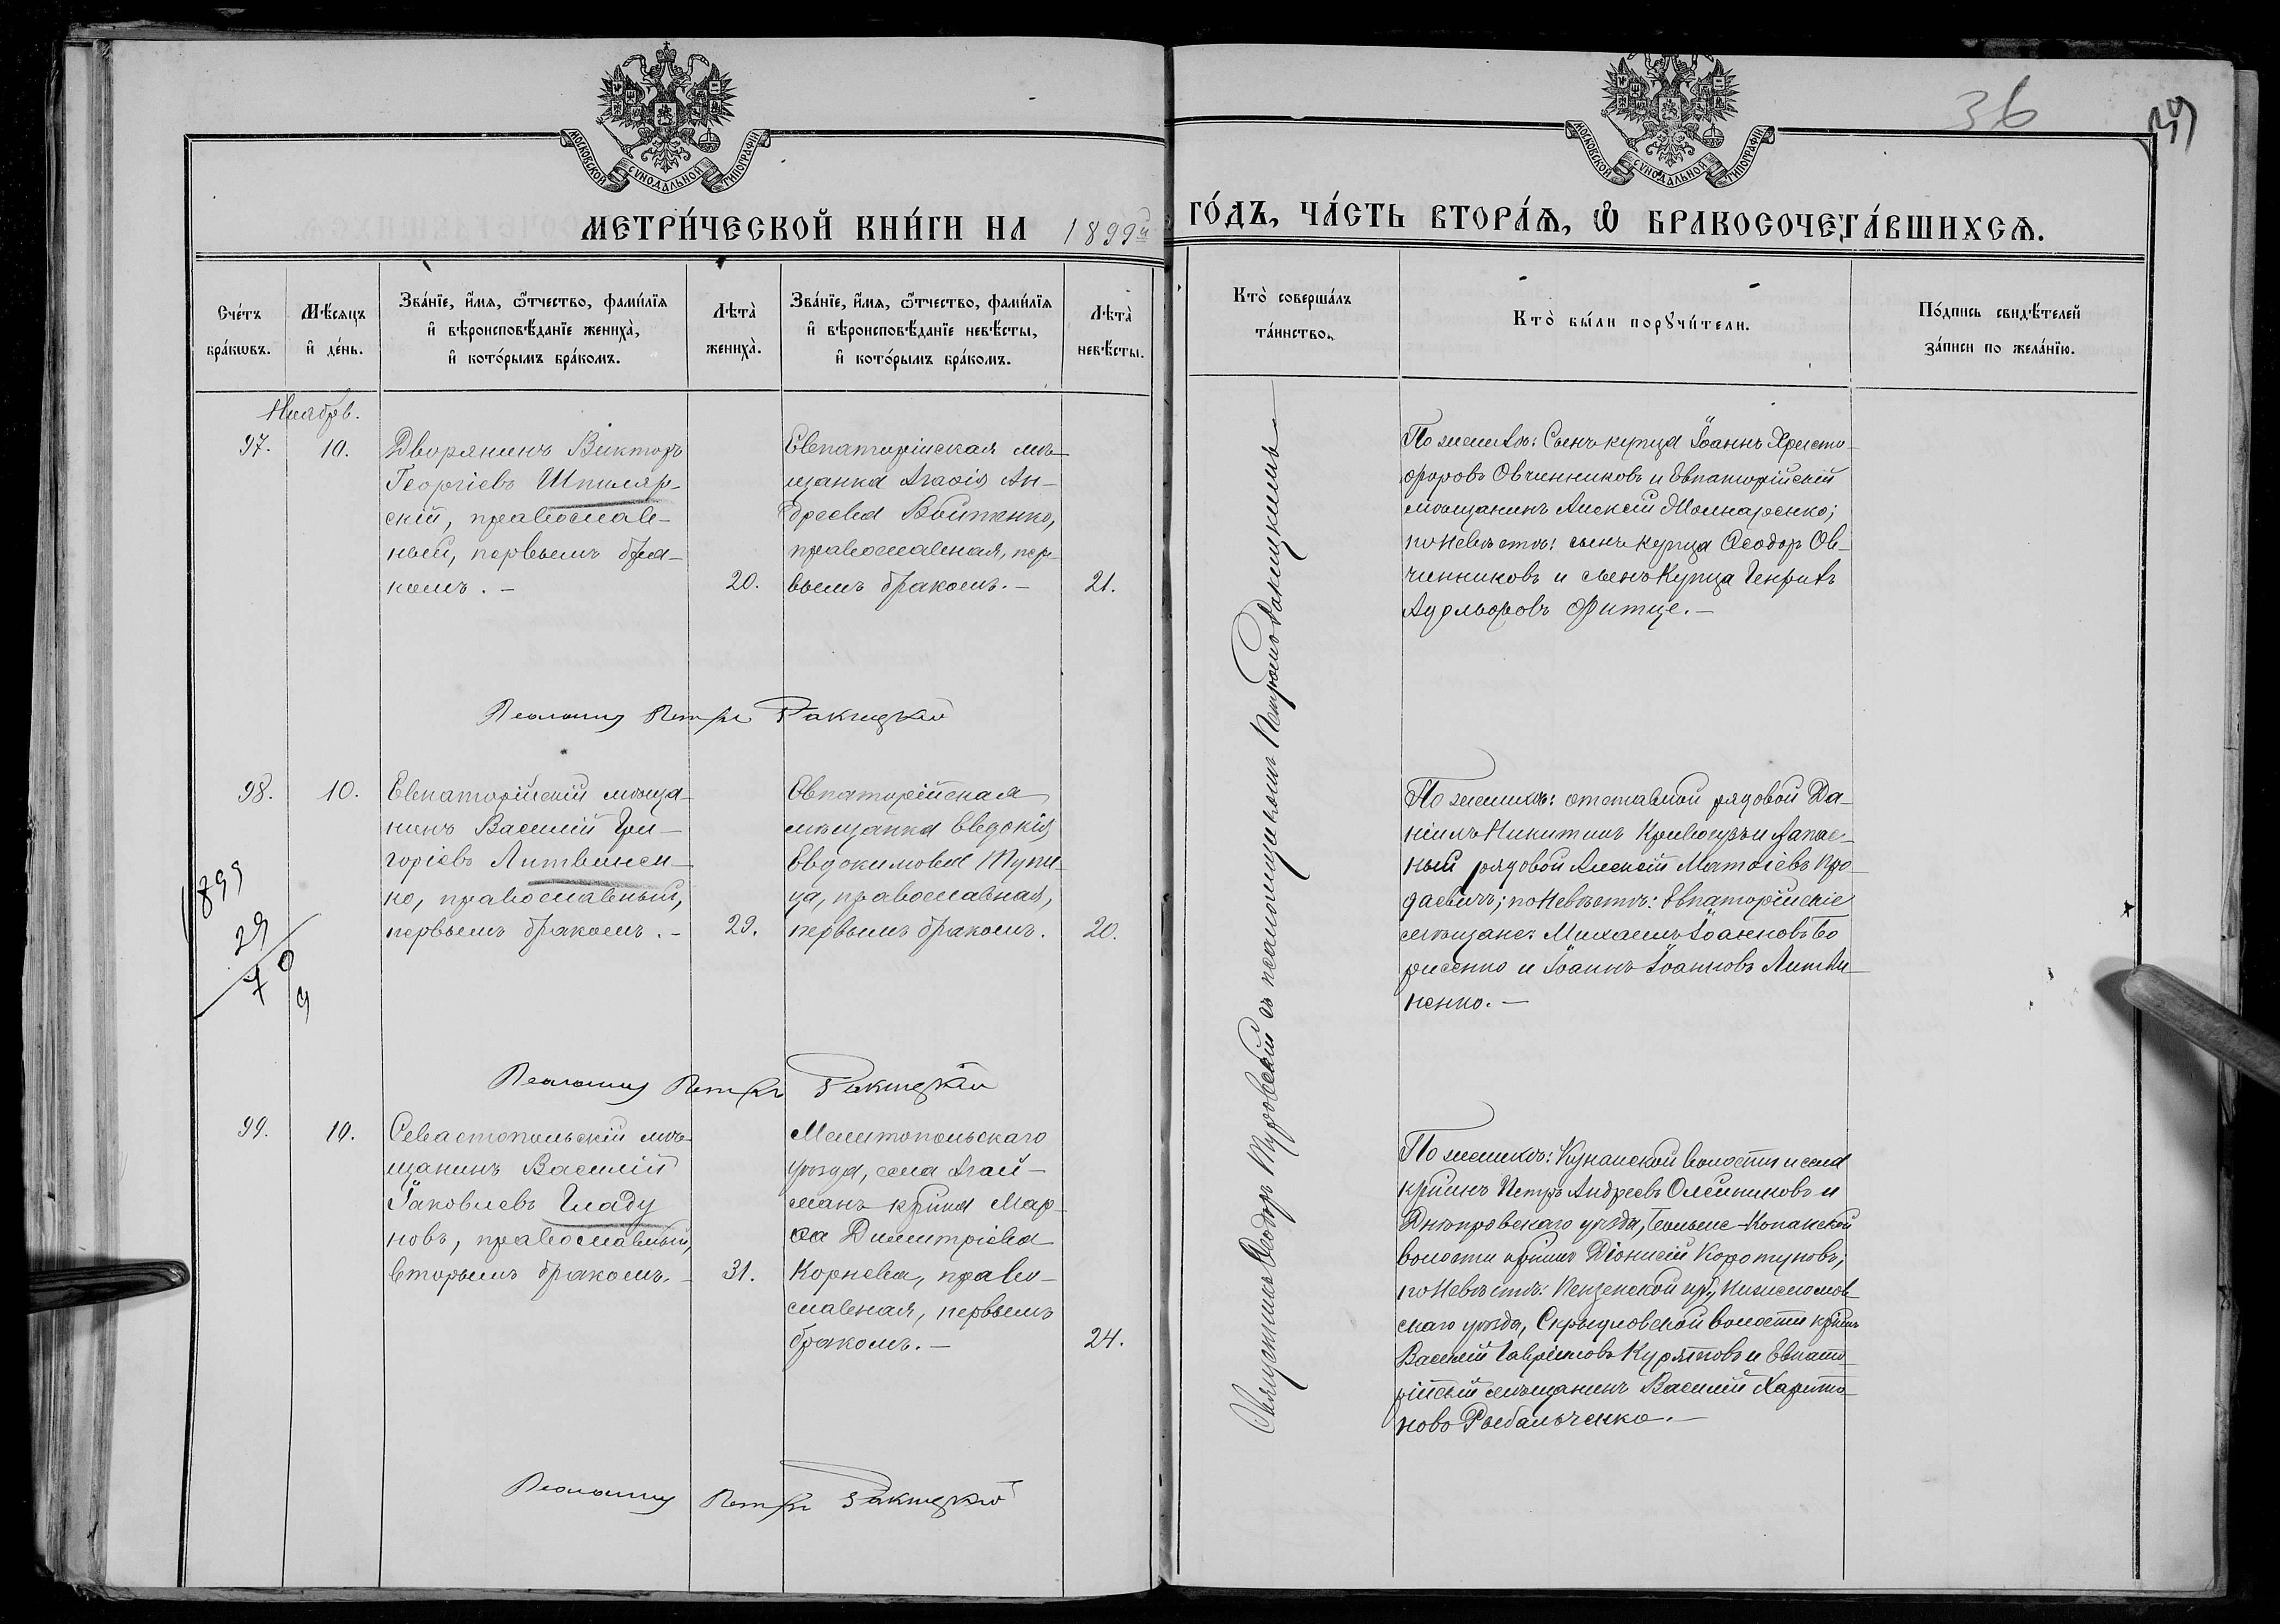 МОСКОВСКОЙ СУНОДАЛЬНОЙ ТИПОГРАФІИ
МЕТРИ́ЧЕСКОЙ КНИ́ГИ НА 1899й
Сче́тъ бра́кωвъ.
Мѣ́сяцъ и҆ де́нь.
Зва́нїе, и҆́мѧ, ѻ҆́тчество, фами́лїѧ
и҆ вѣроисповѣ́данїе жениха̀,
и҆ кото́рымъ бра́комъ.
Лѣта̀ жениха̀.
Зва́нїе, и҆́мѧ, ѻ҆́тчество, фами́лїѧ
и҆ вѣроисповѣ́данїе невѣ́сты,
и҆ кото́рымъ бра́комъ.
Лѣта̀ невѣ́сты.
Ноябрь.
97.
10.
Дворянинъ Викторъ
Георгіевъ
скій, православ-
ный, первымъ бра-
комъ. -
20.
Евпаторійская мѣ-
щанка Агафія Ан-
дреева Войтенко,
православная, пер-
вымъ бракомъ. -
21.
Псаломщ Петръ Ракицкій
98.
10.
Евпаторійскій мѣща-
нинъ Василій Гри-
горіевъ Литвинен-
ко, православный,
первымъ бракомъ. -
29.
Евпаторійская
мѣщанка Евдокія
Евдокимова Тупи-
ца, православная,
первымъ бракомъ.
20.
1899
29
70
9
Псаломщ Петръ Ракицкій
99.
10.
Севастопольскій мѣ-
щанинъ Василій
Іаковлевъ Гладу
новъ, православный,
вторымъ бракомъ. -
31.
Мелитопольскаго
уѣзда, села Агай-
манъ кр-іна Мар-
ѳа Димитріева
Корнева, право-
славная, первымъ
бракомъ. -
24.
Псаломщ Петръ Ракицкій
МОСКОВСКОЙ СУНОДАЛЬНОЙ ТИПОГРАФІИ
36
ГО́ДЪ, ЧА́СТЬ ВТОРА́Ѧ, Ѡ҆ БРАКОСОЧЕТА́ВШИХСѦ.
Кто̀ соверша́лъ
та́инство.
Кто̀ бы́ли порꙋчи́тели.
По́дпись свидѣ́телей
за́писи по жела́нїю.
Священникъ Ѳеодоръ Туровскій съ псаломщикомъ Петромъ Ракицкимъ
По женихѣ: Сынъ купца Іоаннъ Христо-
форовъ Овчинниковъ и Евпаторійскій
мѣщанинъ Алексій Молчаренко;
по невѣстѣ: сынъ купца Ѳеодоръ Ов-
чинниковъ и сынъ купца Генрихъ
Адольфовъ Фитце. -
По женихѣ: отставной рядовой Да-
ніилъ Никитинъ Кривошъ и запас-
ный рядовой Алексій Матѳіевъ Про-
даевичъ; по невѣстѣ: Евпаторійскіе
мѣщане: Михаилъ Іоанновъ Бо
рисенко и Іоаннъ Іоанновъ Литви-
ненко. -
По женихѣ: Кунанской волости и села
кр-інъ Петръ Андреевъ Олейниковъ и
Днѣпровскаго уѣзда, -Копанской
волости кр-інъ Діонисій Коротуновъ;
по невѣстѣ: Пензенской губ., Нижнеломов-
скаго уѣзда, волости кр-інъ
Василій Гавріиловъ Курятовъ и Евпато-
рійскій мѣщанинъ Василій Харито-
новъ Рыбальченко. -